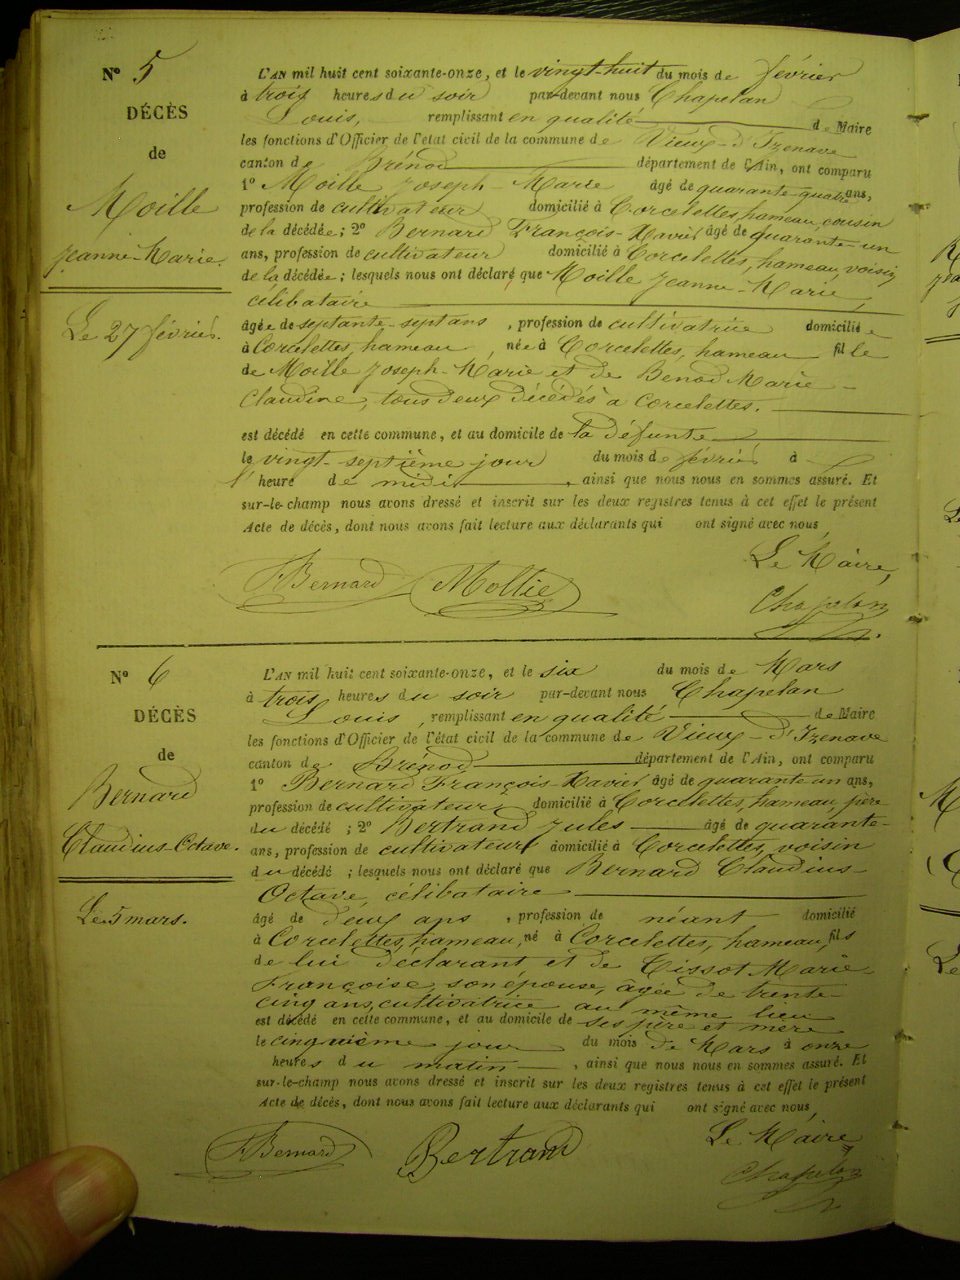 N° 5
DÉCÈS
de
Moille
Jeanne-Marie.
Le 27 février.
L'AN mil huit cent soixante-onze, et le vingt-huit du mois de février
à trois heures du soir par-devant nous Chapelan
Louis, remplissant en qualité de Maire
les fonctions d'Officier de l'état civil de la commune de Vieux-d'Izenave
canton de Brénod département de l'Ain, ont comparu
1° Moille Joseph-Marie âgé de quarante-quatre ans,
profession de cultivateur domicilié à Corcelettes, hameau, cousin
de la décédée; 2° Bernard François-Xavier âgé de quarante-un
ans, profession de cultivateur domicilié à Corcelettes, hameau, voisin
de la décédée; lesquels nous ont déclaré que Moille Jeanne-Marie,
célibataire
âgée de septante-sept ans, profession de cultivatrice domiciliée
à Corcelettes, hameau, née à Corcelettes, hameau fille
de Moille Joseph-Marie et de Benod Marie-
Claudine, tous deux décédés à Corcelettes.
est décédé en cette commune, et au domicile de la défunte
le vingt-septième jour du mois de février à
l'heure de midi, ainsi que nous nous en sommes assuré. Et
sur-le-champ nous avons dressé et inscrit sur les deux registres tenus à cet effet le présent
Acte de décès, dont nous avons fait lecture aux déclarants qui ont signé avec nous,
Le Maire,
Bernard Mollie
Chapelan
N° 6
DÉCÈS
de
Bernard
Claudius-Octave.
Le 5 mars.
L'AN mil huit cent soixante-onze, et le six du mois de Mars
à trois heures du soir par-devant nous Chapelan
Louis, remplissant en qualité de Maire
les fonctions d'Officier de l'état civil de la commune de Vieux-d'Izenave
canton de Brénod département de l'Ain, ont comparu
1° Bernard François-Xavier âgé de quarante-un ans,
profession de cultivateur, domicilié à Corcelettes, hameau, père
du décédé; 2° Bertrand Jules âgé de quarante-
ans, profession de cultivateur domicilié à Corcelettes, voisin
du décédé; lesquels nous ont déclaré que Bernard Claudius-
Octave, célibataire
âgé de deux ans, profession de néant domicilié
à Corcelettes, hameau, né à Corcelettes, hameau, fils
de lui déclarant et de Tissot Marie-
Françoise, son épouse, âgée de trente-
cinq ans, cultivatrice au même lieu
est décédé en cette commune, et au domicile de ses père et mère
le cinquième jour du mois de Mars à onze
heures du matin, ainsi que nous nous en sommes assuré. Et
sur-le-champ nous avons dressé et inscrit sur les deux registres tenus à cet effet le présent
Acte de décès, dont nous avons fait lecture aux déclarants qui ont signé avec nous,
Le Maire
Bernard Bertrand
Chapelan